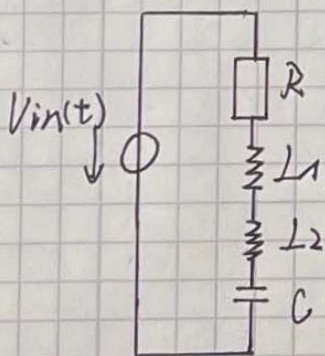 R
Vin(t)
L1
L2
C